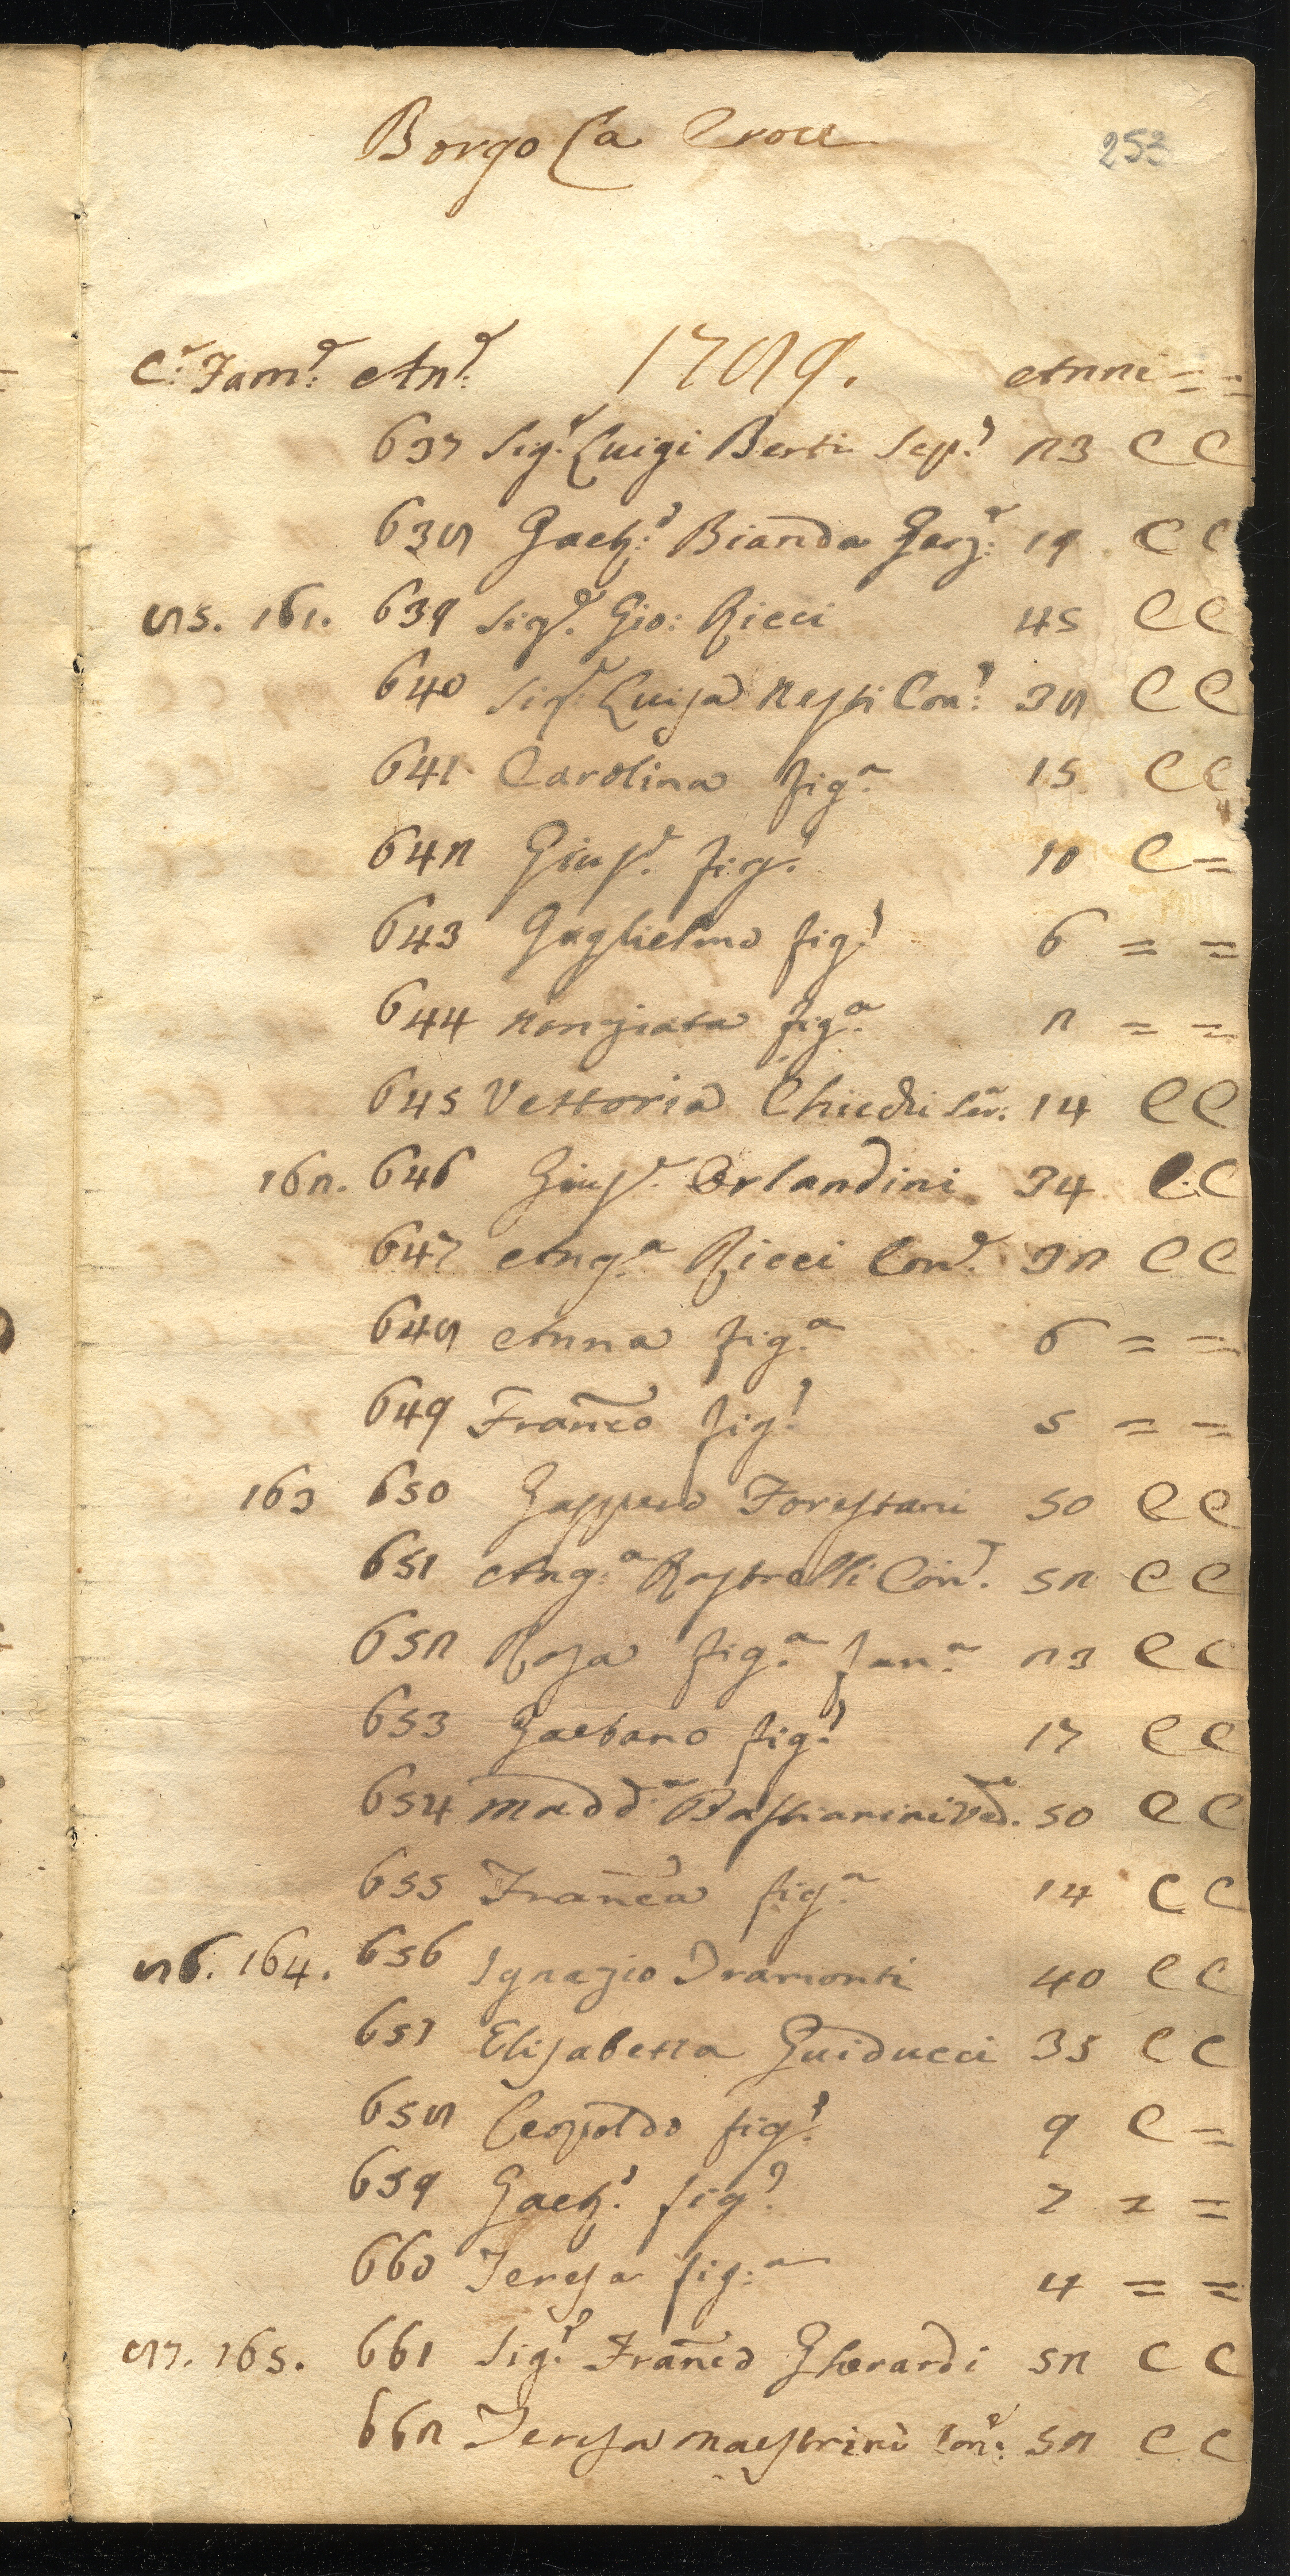 Borgo La Croce
253
C.e Fam.e An.e 1789. Anni = =
637 Sig.r Luigi Berti Sep.o 23 C C
638 Gaet.o Bianda Garz.e 19 C C
85. 161. 639 Sig.e Gio: Ricci 45 C C
640 Sig.a Luisa Nesti Con.e 38 C C
641 Carolina fig.a 15 C C
642 Gius.e fig.o 10 C =
643 Guglielmo fig.o 6 = =
644 Nonziata fig.a 2 = =
645 Vettoria Chiedri Ser. 14 C C
162. 646 Gius.e Orlandini 34 C C
647 Ang.a Ricci Con.e 32 C C
648 Anna fig.a 6 = =
649 Franco fig.o 5 = =
163 650 Gaspero Forestani 50 C C
651 Ang.a Rastrelli Con.e 52 C C
652 Rosa fig.a fan.a 23 C C
653 Gaetano fig.o 17 C C
654 Madd.a Bastianini Ved. 50 C C
655 Franca fig.a 14 C C
86. 164. 656 Ignazio Tramonti 40 C C
657 Elisabetta Guiducci 35 C C
658 Leopoldo fig.o 9 C =
659 Gaet.o fig.o 7 = =
660 Teresa fig.a 4 = =
87. 165. 661 Sig.r Franco Gherardi 52 C C
662 Teresa Maestrini Con.e 52 C C